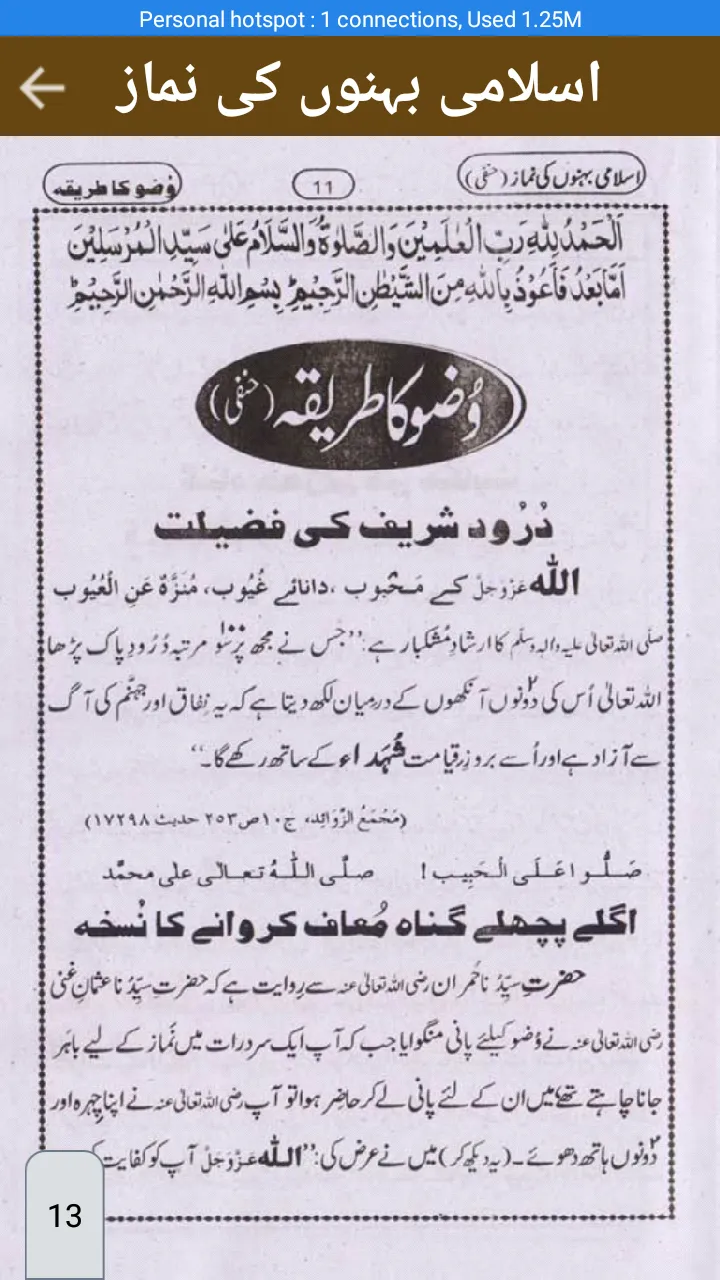 Personal hotspot : 1 connections, Used 1.25M
اسلامی بہنوں کی نماز
اسلامی بہنوں کی نماز (حنفی)
11
وُضو کا طریقہ
اَلْحَمْدُ لِلّٰہِ رَبِّ الْعٰلَمِیْنَ وَالصَّلٰوۃُ وَالسَّلَامُ عَلٰی سَیِّدِ الْمُرْسَلِیْنَ
اَمَّا بَعْدُ فَاَعُوْذُ بِاللّٰہِ مِنَ الشَّیْطٰنِ الرَّجِیْمِ ؕ بِسْمِ اللّٰہِ الرَّحْمٰنِ الرَّحِیْمِ ؕ
وُضو کا طریقہ (حنفی)
دُرُود شریف کی فضیلت
اللّٰه عَزَّوَجَلَّ کے مَحبوب ، دانائے غُیُوب، مُنَزَّہٌ عَنِ الْعُیُوب
صلَّی اللہ تعالیٰ علیہ واٰلہٖ وسلَّم کا ارشادِ مُشکبار ہے: ’’جس نے مجھ پر سَو مرتبہ دُرُودِ پاک پڑھا
اللہ تعالیٰ اُس کی دونوں آنکھوں کے درمیان لکھ دیتا ہے کہ یہ نِفاق اور جہنَّم کی آگ
سے آزاد ہے اور اُسے بروزِ قِیامت شُہَداء کے ساتھ رکھے گا۔‘‘
(مَجْمَعُ الزَّوَائِد، ج۱۰ ص۲۵۳ حدیث ۱۷۲۹۸)
صَلُّوا عَلَی الْحَبِیب ! صلَّی اللّٰہُ تعالٰی علٰی محمَّد
اگلے پچھلے گناہ مُعاف کروانے کا نُسخہ
حضرتِ سیِّدُنا حُمران رضی اللہ تعالیٰ عنہ سے رِوایت ہے کہ حضرتِ سیِّدُنا عثمانِ غنی
رضی اللہ تعالیٰ عنہ نے وُضو کیلئے پانی منگوایا جب کہ آپ ایک سرد رات میں نَماز کے لیے باہَر
جانا چاہتے تھے میں ان کے لئے پانی لے کر حاضِر ہوا تو آپ رضی اللہ تعالیٰ عنہ نے اپنا چِہرہ اور
دونوں ہاتھ دھوئے۔ (یہ دیکھ کر) میں نے عرض کی: ’’اللّٰه عَزَّوَجَلَّ آپ کو کفایت
13